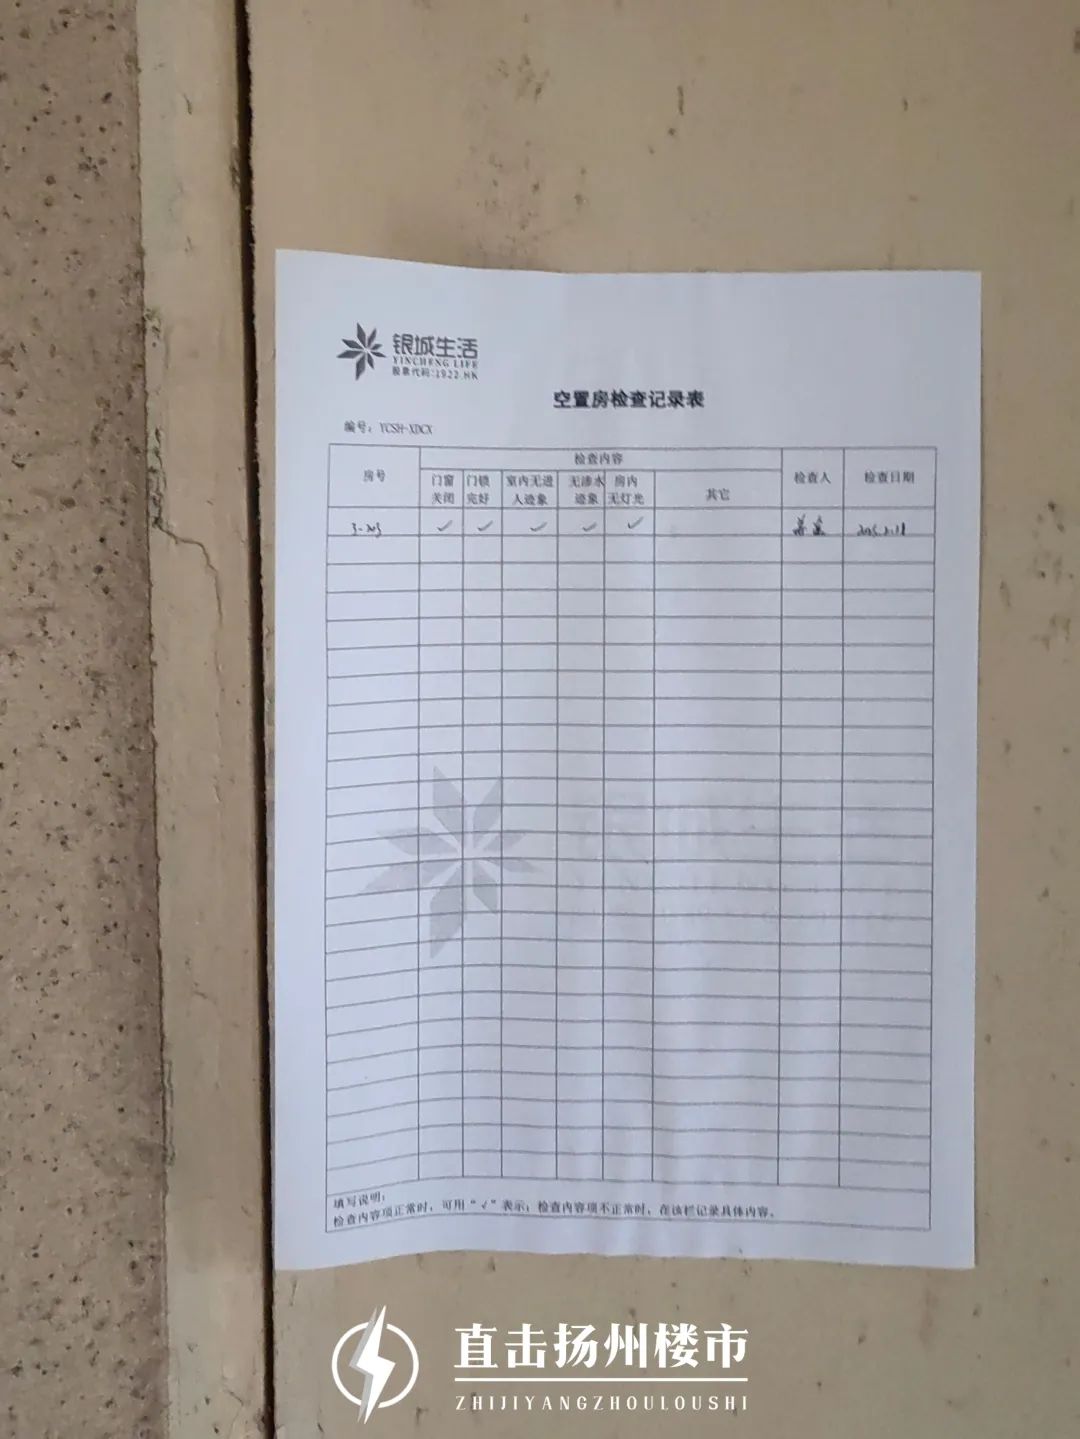 银城生活
YINCHENG LIFE
股票代码:1922.HK
空置房检查记录表
编号：YCSH-XDCX
房号 检查内容 检查人 检查日期
门窗关闭 门锁完好 室内无进人迹象 无渗水迹象 房内无灯光 其它
3-203 ✓ ✓ ✓ ✓ ✓
填写说明：
检查内容项正常时，可用“√”表示；检查内容项不正常时，在该栏记录具体内容。
直击扬州楼市
ZHIJIYANGZHOULOUSHI